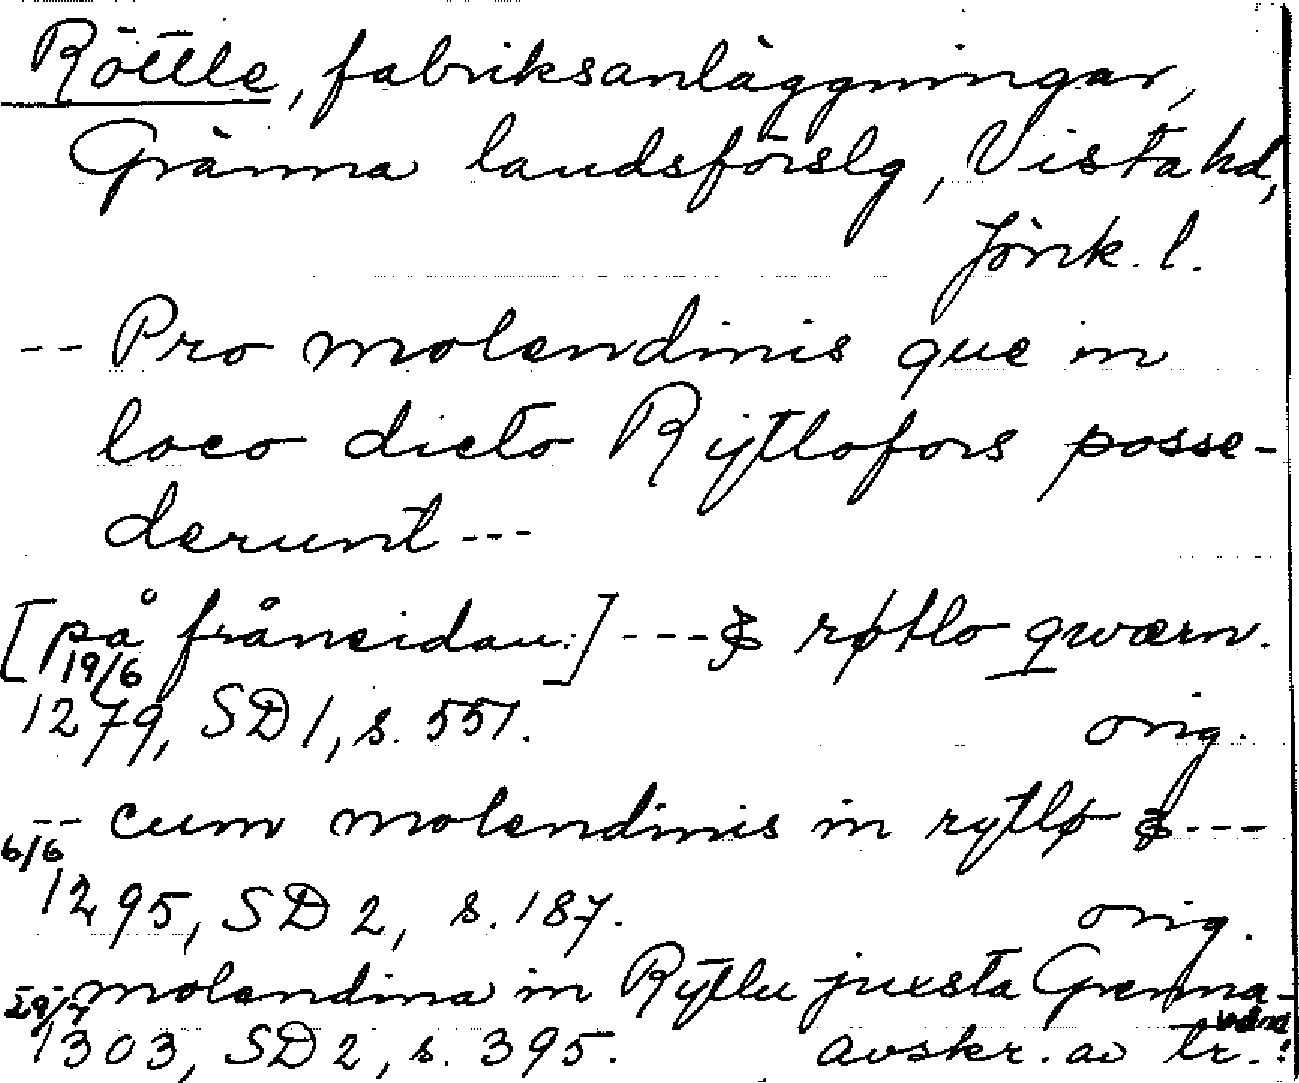 Röttle, fabriksanläggningar,
Gränna landsförslg, Vista hd,
Jönk. l.
-- Pro molendinis que in
loco dicto Rytlofors posse-
derunt ---
[på frånsidan:] --- & røtlo qwærn.
19/6
1279, SD 1, s. 551. orig.
-- cum molendinis in rytlø & ---
6/6
1295, SD 2, s. 187. orig.
-- molendina in Rytlu juxsta Grenna-
29/7
1303, SD 2, s. 395. avskr. av tr.!